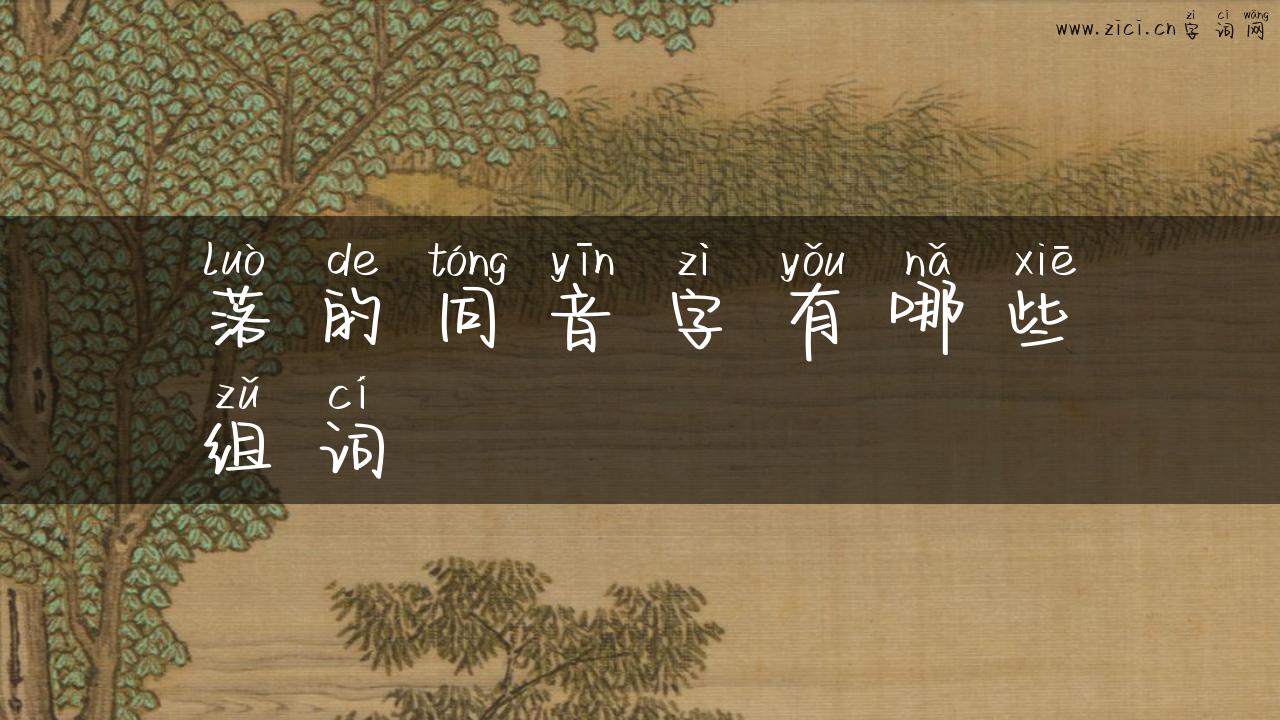 zì cí wǎng
www.zici.cn字词网
luò de tóng yīn zì yǒu nǎ xiē
落的同音字有哪些
zǔ cí
组词